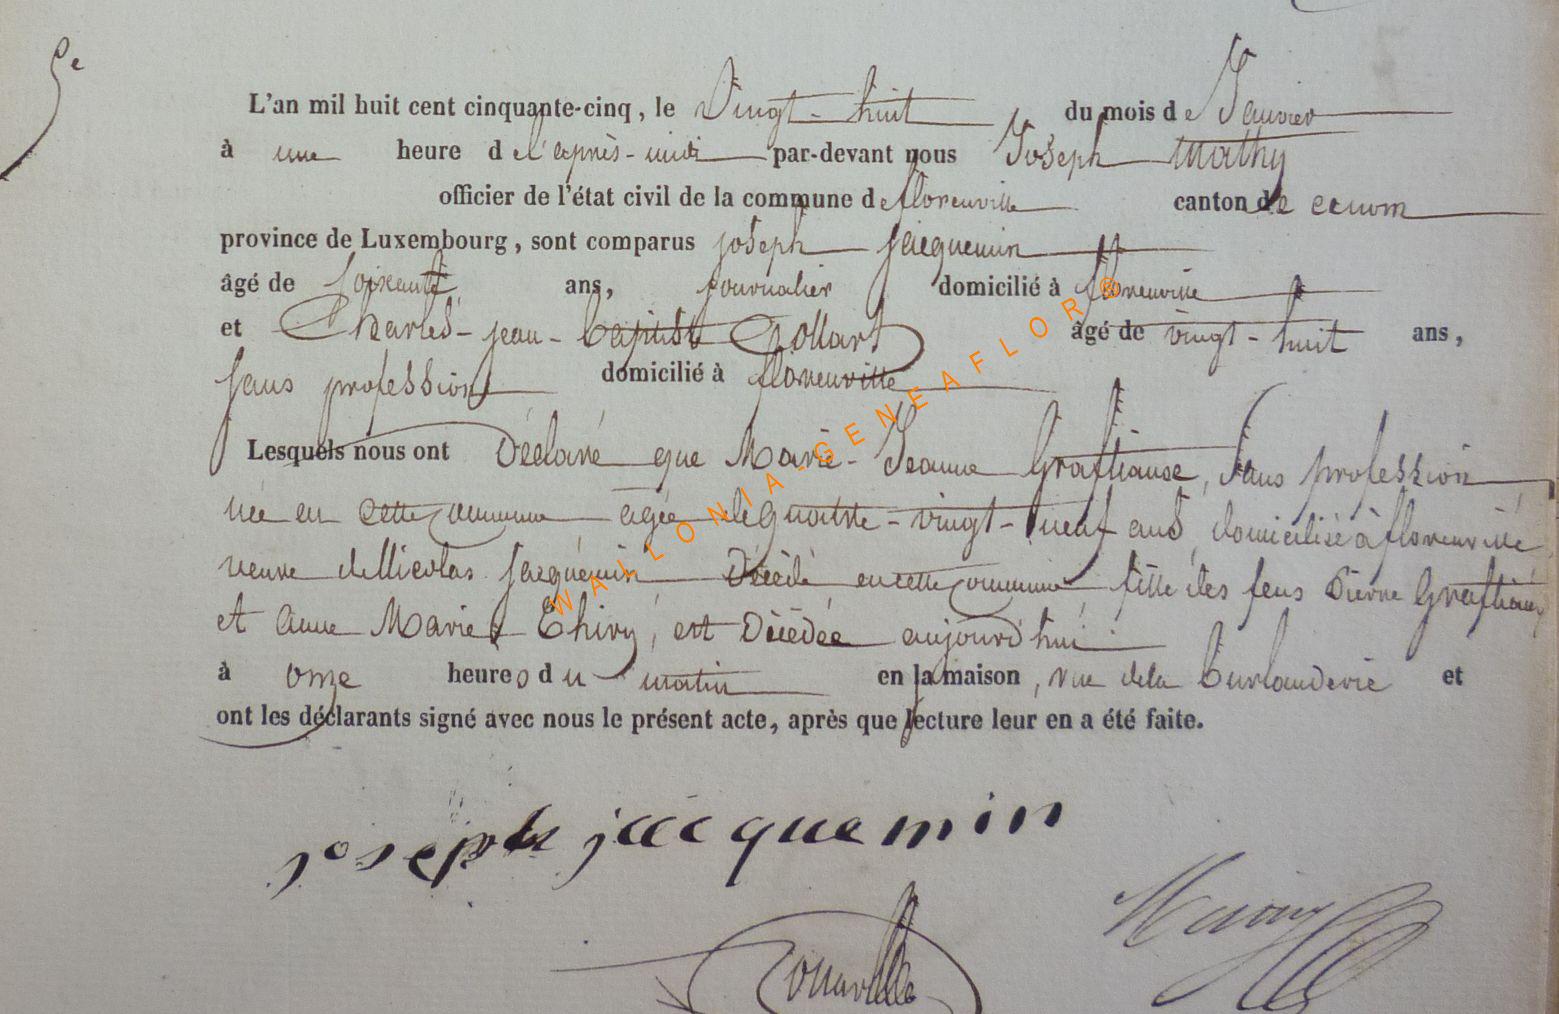 5e
L'an mil huit cent cinquante-cinq, le Vingt-huit du mois de Janvier
à une heure de l'après-midi par-devant nous Joseph Mathy
officier de l'état civil de la commune de florenville canton de
province de Luxembourg, sont comparus joseph jacquemin
âgé de soixante ans, journalier domicilié à florenville
et Charles-jean-baptiste Collart âgé de vingt-huit ans,
sans profession domicilié à florenville
Lesquels nous ont Déclaré que Marie-Jeanne Graftiause, Sans profession
née en cette commune agée de quatre-vingt-neuf ans, domiciliée à florenville
veuve de Nicolas jacquemin Décédé en cette commune fille des feus Pierre Graftiaux
et anne Marie Thiry, est Décédée aujourd'hui
à onze heures du matin en la maison, rue de la burlanderie et
ont les déclarants signé avec nous le présent acte, après que lecture leur en a été faite.
joseph jacquemin
WALLONIA-GENEAFLOR®